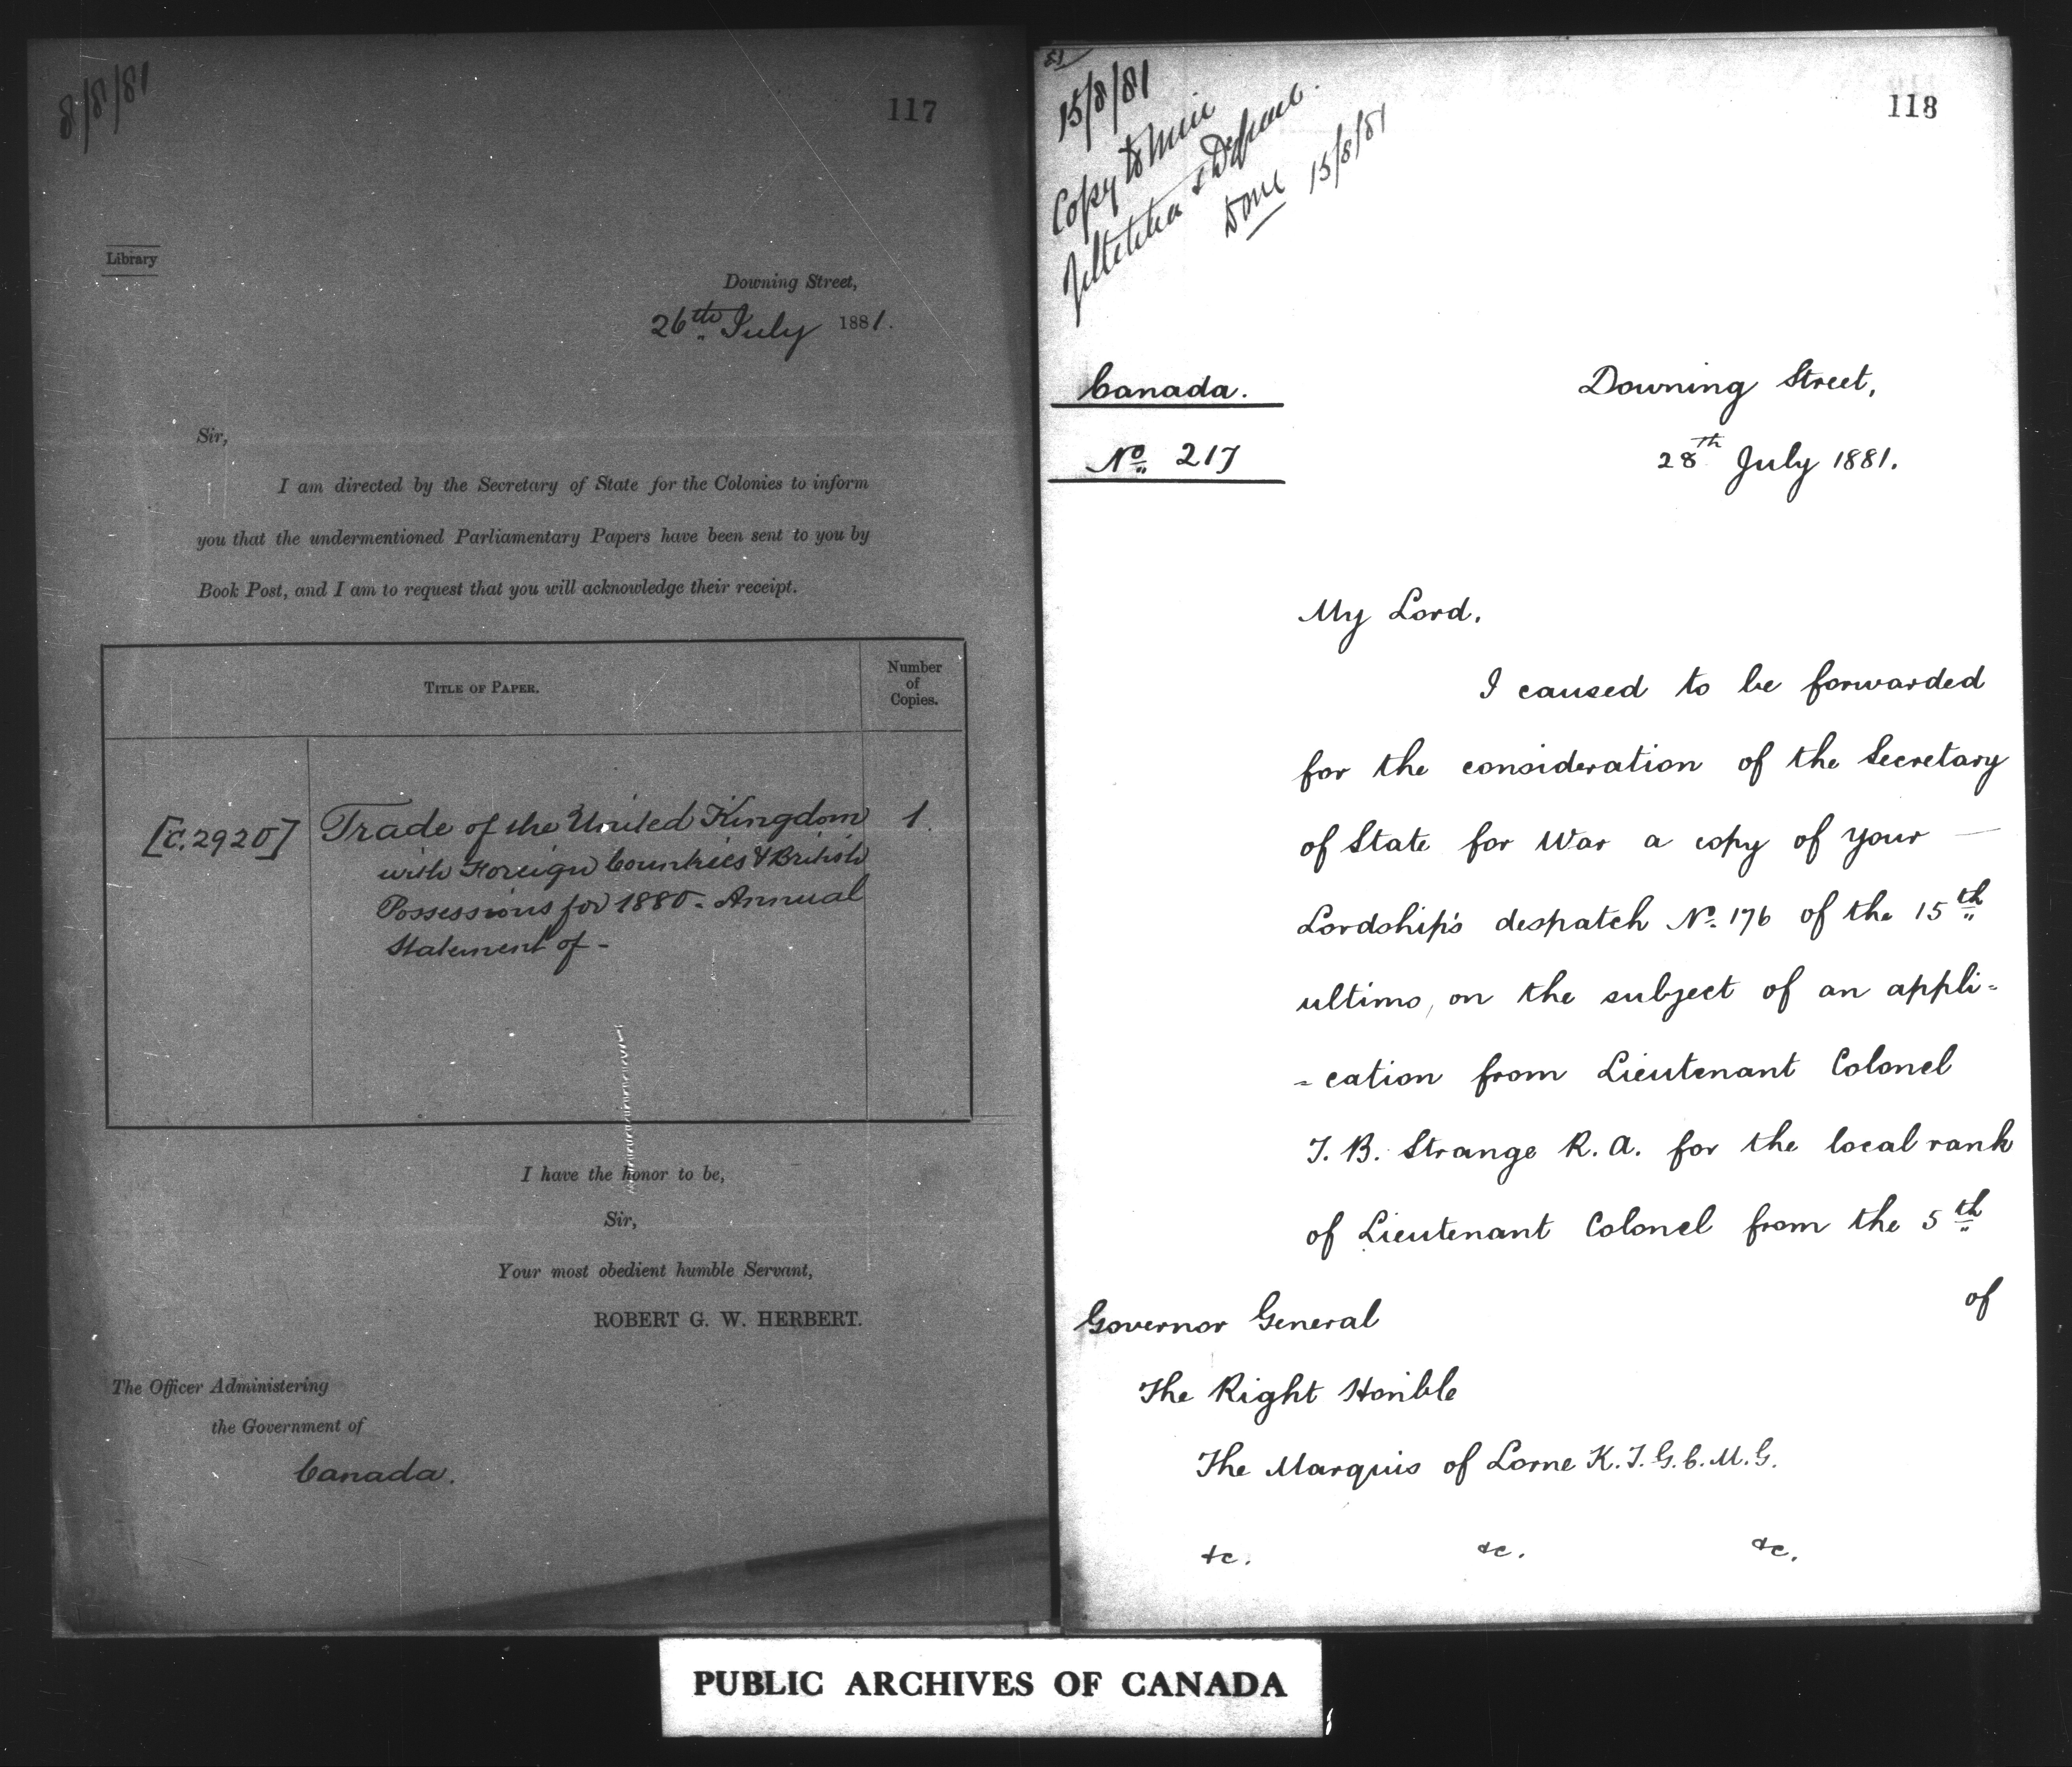 8/8/81
117
Library
Downing Street,
26th July 1881.
Sir,
I am directed by the Secretary of State for the Colonies to inform
you that the undermentioned Parliamentary Papers have been sent to you by
Book Post, and I am to request that you will acknowledge their receipt.
TITLE OF PAPER.
Number
of
Copies.
[C.2920] Trade of the United Kingdom 1.
with Foreign Countries & British
Possessions for 1880. Annual
Statement of -
I have the honor to be,
Sir,
Your most obedient humble Servant,
ROBERT G. W. HERBERT.
The Officer Administering
the Government of
Canada.
15/8/81
Copy to Min
& Defence.
Done 15/8/81
118
Canada.
No. 217
Downing Street,
28th July 1881.
My Lord,
I caused to be forwarded
for the consideration of the Secretary
of State for War a copy of your
Lordship's despatch No. 176 of the 15th
ultimo, on the subject of an appli=
=cation from Lieutenant Colonel
T. B. Strange R. A. for the local rank
of Lieutenant Colonel from the 5th
of
Governor General
The Right Honble
The Marquis of Lorne K.T. G.C.M.G.
&c. &c. &c.
PUBLIC ARCHIVES OF CANADA